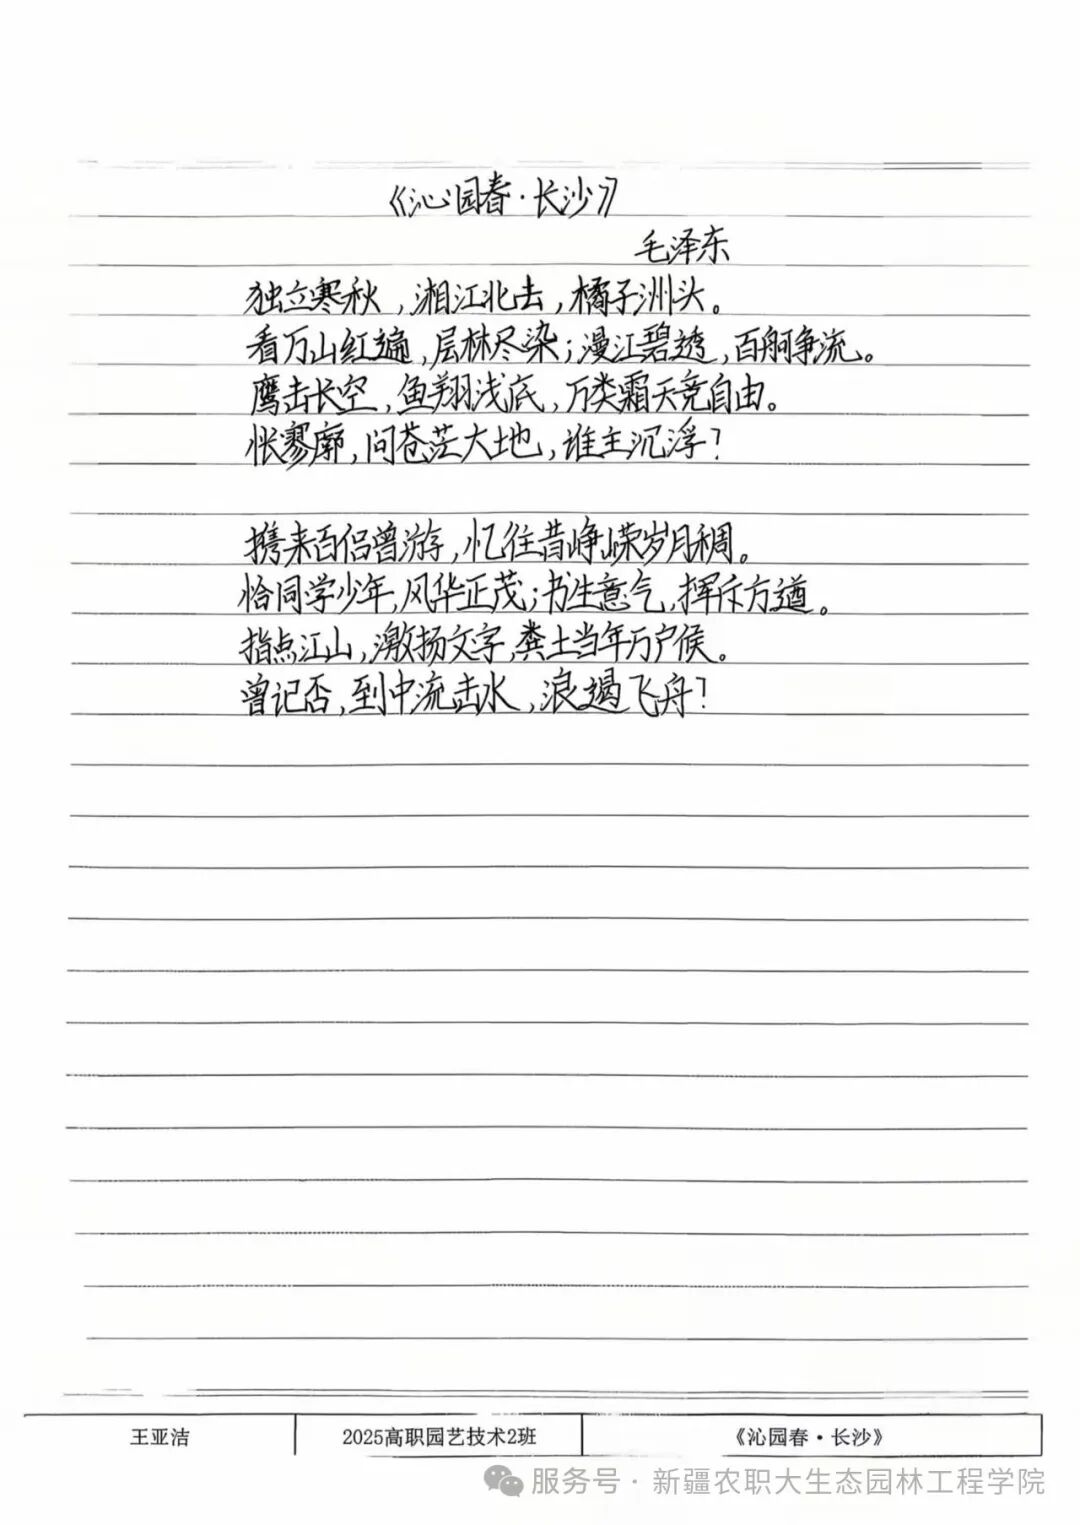 《沁园春·长沙》
毛泽东
独立寒秋，湘江北去，橘子洲头。
看万山红遍，层林尽染；漫江碧透，百舸争流。
鹰击长空，鱼翔浅底，万类霜天竞自由。
怅寥廓，问苍茫大地，谁主沉浮？
携来百侣曾游，忆往昔峥嵘岁月稠。
恰同学少年，风华正茂；书生意气，挥斥方遒。
指点江山，激扬文字，粪土当年万户候。
曾记否，到中流击水，浪遏飞舟？
王亚洁 2025高职园艺技术2班 《沁园春·长沙》
服务号·新疆农职大生态园林工程学院